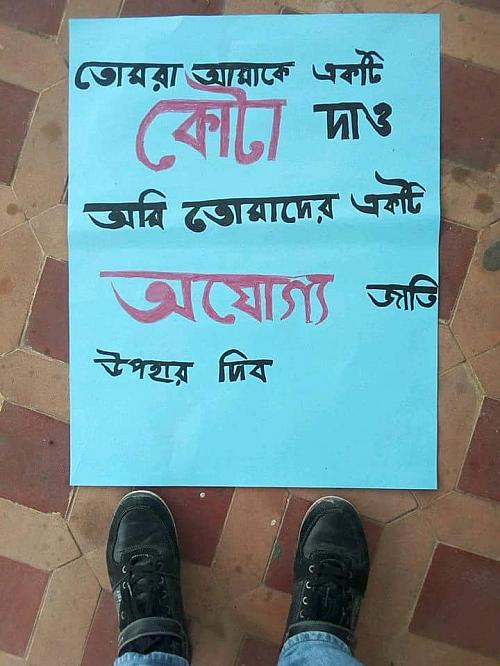 তোমরা আমাকে একটি
কোটা দাও
আমি তোমাদের একটি
অযোগ্য জাতি
উপহার দিব